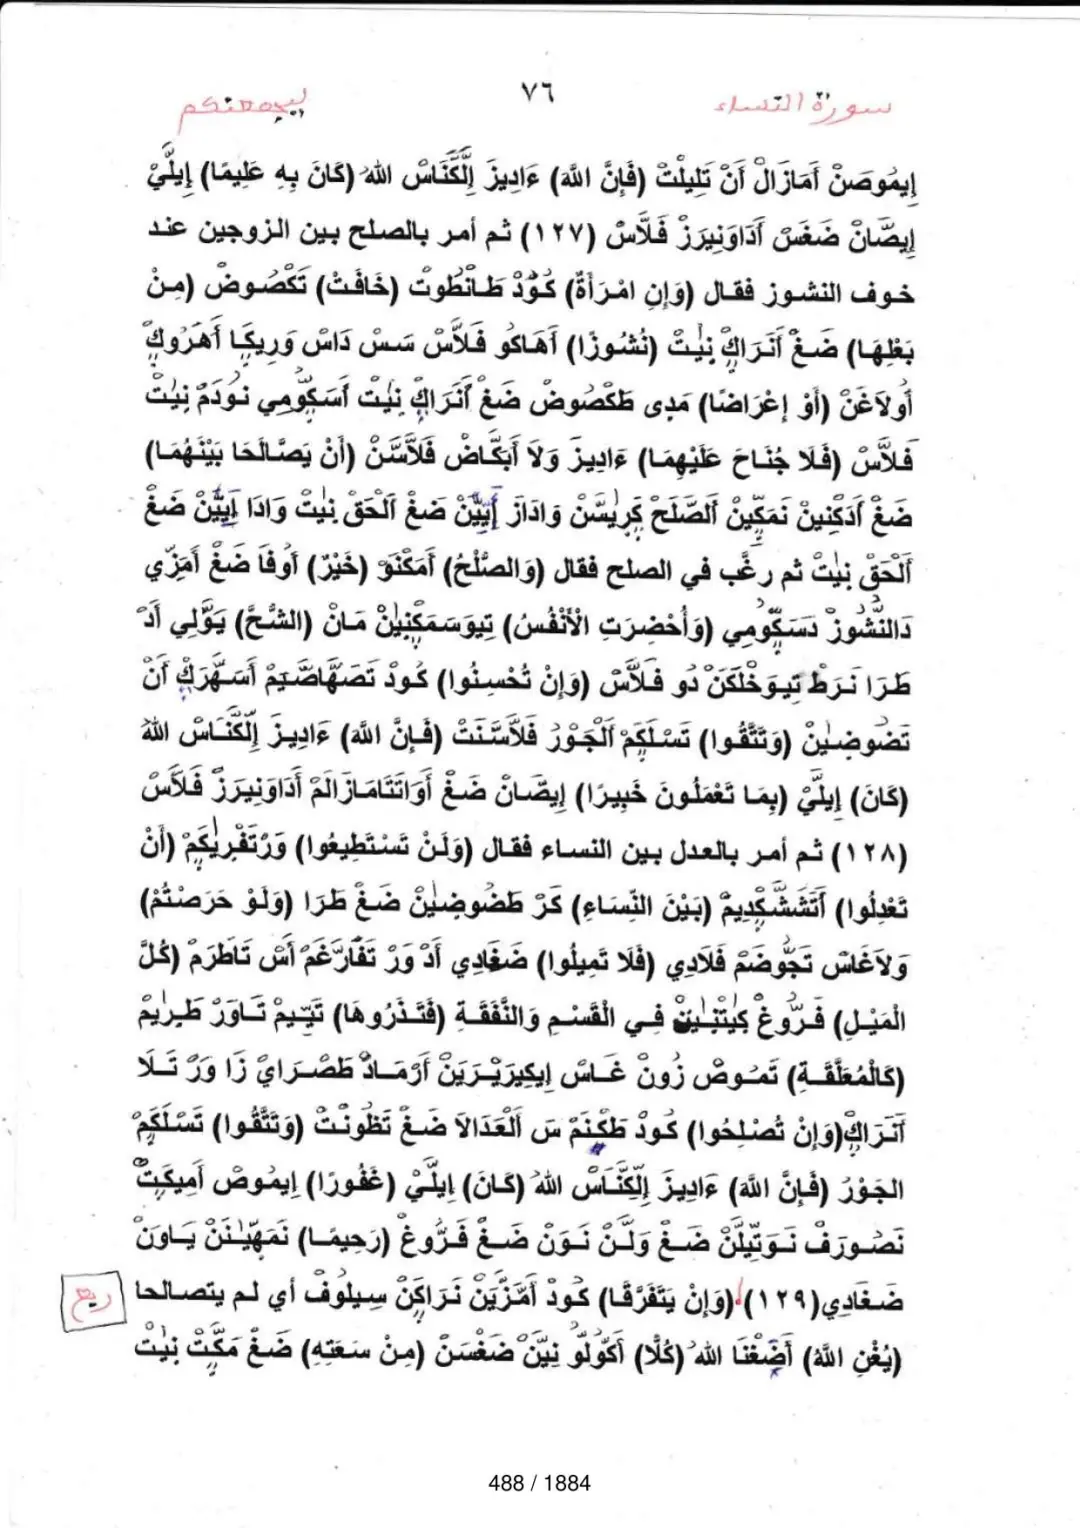 سورة النساء
٧٦
ليجمعنكم
إِيمُوصَنْ أَمَازَالْ أَنْ تَلِيلْتْ (فَإِنَّ اللَّهَ) ءَادِيزَ إِلْكَنَاسْ اللهُ (كَانَ بِهِ عَلِيمًا) إِيلَيْ
إِيصَانْ ضَغَسْ أَدَاوَنِيرَزْ فَلَاسْ (١٢٧) ثم أمر بالصلح بين الزوجين عند
خوف النشوز فقال (وَإِنِ امْرَأَةٌ) كُودْ طَانْطُوتْ (خَافَتْ) تَكْصُوضْ (مِنْ
بَعْلِهَا) ضَغْ أَنَرَاكْ نِيْتْ (نُشُوزًا) أَهَاكُو فَلَاسْ سَسْ دَاسْ وَرِيكَا أَهَرُوكْ
أُولَاغَنْ (أَوْ إِعْرَاضًا) مَدِى طَكْصُوضْ ضَغْ أَنَرَاكْ نِيْتْ أَسَكُومِي نُودَمْ نِيْتْ
فَلَاسْ (فَلَا جُنَاحَ عَلَيْهِمَا) ءَادِيزَ وَلَا أَبَكَاضْ فَلَاسَنْ (أَنْ يَصَّالَحَا بَيْنَهُمَا)
ضَغْ أَدَكْنِينْ نَمَكِينْ اَلصُّلَحْ كَرِيسَنْ وَادَازَ إَيِيَنْ ضَغْ اَلْحَقْ نِيْتْ وَادَا إَيِيَنْ ضَغْ
اَلْحَقْ نِيْتْ ثم رغَّب في الصلح فقال (وَالصُّلْحُ) أَمَكْنَوْ (خَيْرٌ) أُوفَا ضَغْ أَمَزِّي
دَالنُّشُوزْ دَسَكُومِي (وَأُحْضِرَتِ الْأَنْفُسُ) تِيوَسَمَكْنِيْنْ مَانْ (الشُّحَّ) يَوَّلِي أَدْ
طَرَا نَرَطْ تِيوَخْلَكَنْ دُو فَلَاسْ (وَإِنْ تُحْسِنُوا) كُودْ تَصَهَاضَيِمْ أَسَهَرَكْ أَنْ
تَضُوضِيْنْ (وَتَتَّقُوا) تَسْلَكَمْ اَلْجَوْرْ فَلَاسَنَتْ (فَإِنَّ اللَّهَ) ءَادِيزَ إِلْكَنَاسْ اللهُ
(كَانَ) إِيلَيْ (بِمَا تَعْمَلُونَ خَبِيرًا) إِيصَانْ ضَغْ أَوَاتَتَامَازَالَمْ أَدَاوَنِيرَزْ فَلَاسْ
(١٢٨) ثم أمر بالعدل بين النساء فقال (وَلَنْ تَسْتَطِيعُوا) وَرْتَفْرِيكَمْ (أَنْ
تَعْدِلُوا) أَتَشَشَكْدِيمْ (بَيْنَ النِّسَاءِ) كَرْ طَضُوضِيْنْ ضَغْ طَرَا (وَلَوْ حَرَصْتُمْ)
وَلَاغَاسْ تَجُّوضَمْ فَلَادِي (فَلَا تَمِيلُوا) ضَغَادِي أَدْ وَرْ تَفَارَغَمْ أَسْ تَاطَرَمْ (كُلَّ
الْمَيْلِ) فَرُّوغْ كِيتْنَيْنْ فِي الْقَسْمِ وَالنَّفَقَةِ (فَتَذَرُوهَا) تَيِيمْ تَاوَرْ طَرِيْمْ
(كَالْمُعَلَّقَةِ) تَمُوصْ زُونْ غَاسْ إِيكِيرَيْرَيَنْ أَرْمَادْ طَصْرَايْ زَا وَرْ تَلَا
أَنَرَاكْ(وَإِنْ تُصْلِحُوا) كُودْ طَكْنَمْ سَ اَلْعَدَالَا ضَغْ تَظُونْتْ (وَتَتَّقُوا) تَسْلَكَمْ
الجَوْرْ (فَإِنَّ اللَّهَ) ءَادِيزَ إِلْكَنَاسْ اللهُ (كَانَ) إِيلَيْ (غَفُورًا) إِيمُوصْ أَمِيكَتْ
نَصُورَفْ نَوَتِيلَنْ ضَغْ وَلَنْ نَوَنْ ضَغْ فَرُّوغْ (رَحِيمًا) نَمَهَيْنَنْ يَاوَنْ
ضَغَادِي(١٢٩) (وَإِنْ يَتَفَرَّقَا) كُودْ أَمَّزَيَنْ نَرَاكَنْ سِيلُوفْ أي لم يتصالحا
ربع
(يُغْنِ اللَّهُ) أَضَغْنَا اللهُ (كُلًّا) أَكُولُو نِيَنْ ضَغْسَنْ (مِنْ سَعَتِهِ) ضَغْ مَكَتْ نِيْتْ
488 / 1884